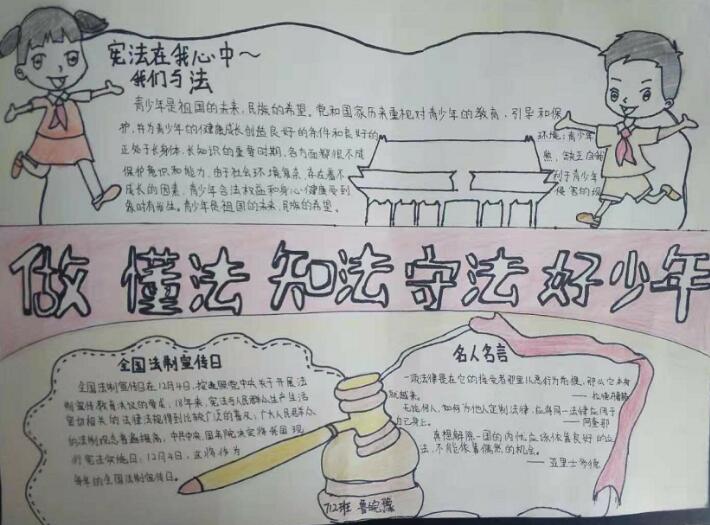 宪法在我心中～
我们与法
青少年是祖国的未来，民族的希望。党和国家历来重视对青少年的教育，引导和保
护，并为青少年的健康成长创造良好的条件和良好的环境；青少年
正处于长身体，长知识的重要时期，各方面都很不成熟，缺乏自我
保护意识和能力，由于社会环境复杂，存在着不利于青少年
成长的因素，青少年合法权益和身心健康受到侵害的现
象时有发生。青少年是祖国的未来，民族的希望。
做 懂法 知法 守法 好少年
全国法制宣传日
全国法制宣传日在12月4日，按照党中央关于开展法
制宣传教育决议的要求，18年来，宪法与人民群众生产生活
密切相关的法律法规得到比较广泛的普及，广大人民群众
的法制观念普遍提高，中共中央、国务院决定将我国现
行宪法实施日，12月4日，这将作为
每年的全国法制宣传日。
名人名言
一项法律是在它的接受者那里以恶行为前提，那么它本身
就越来。
无论何人，如何为他人制定法律，应将同一法律应用于
自己身上。 ——阿奎那
真想解除一国的内忧应该依靠良好的立
法，不能依靠偶然的机会。
——亚里士多德
712班 鲁